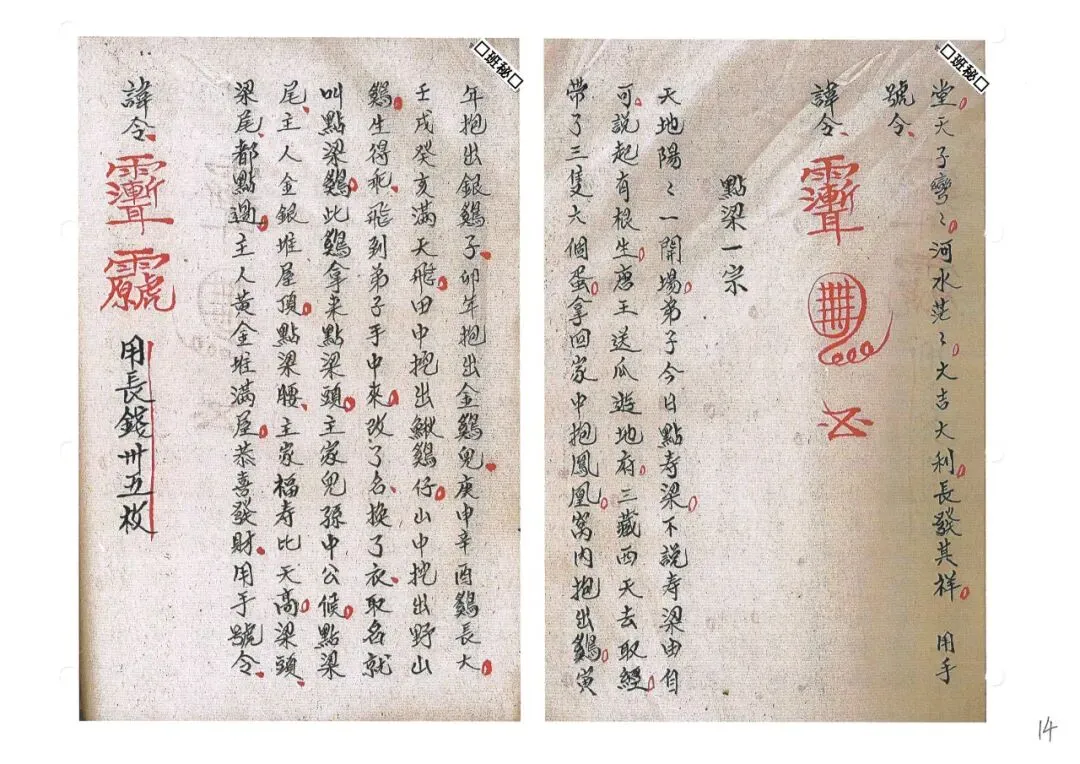 □班秘□
堂天子彎〻河水茫〻大吉大利長發其祥 用手
號令
諱令
點梁一宗
天地陽〻一開場弟子今日點寿梁不說寿梁由自
可說起有根生唐王送瓜遊地府三藏西天去取經
帶了三隻大個蛋拿回家中抱鳳凰窩内抱出鷄寅
□班秘□
年抱出銀鷄子卯年抱出金鷄兒庚申辛酉鷄長大
壬戌癸亥滿天飛田中挖出鰍鷄仔山中挖出野山
鷄生得乖飛到弟子手中來改了名換了衣取名就
叫點梁鷄此鷄拿来點梁頭主家兒孫中公候點梁
尾主人金銀堆屋頂點梁腰主家福寿比天高梁頭
梁尾都點過主人黃金堆滿屋恭喜發財用手號令
諱令
用長錢卅五枚
14